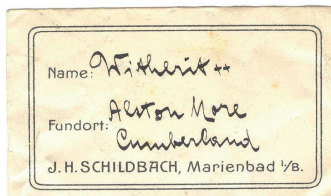 Name: Witherit ++
Fundort: Alston More
Cumberland
J. H. SCHILDBACH, Marienbad i/B.